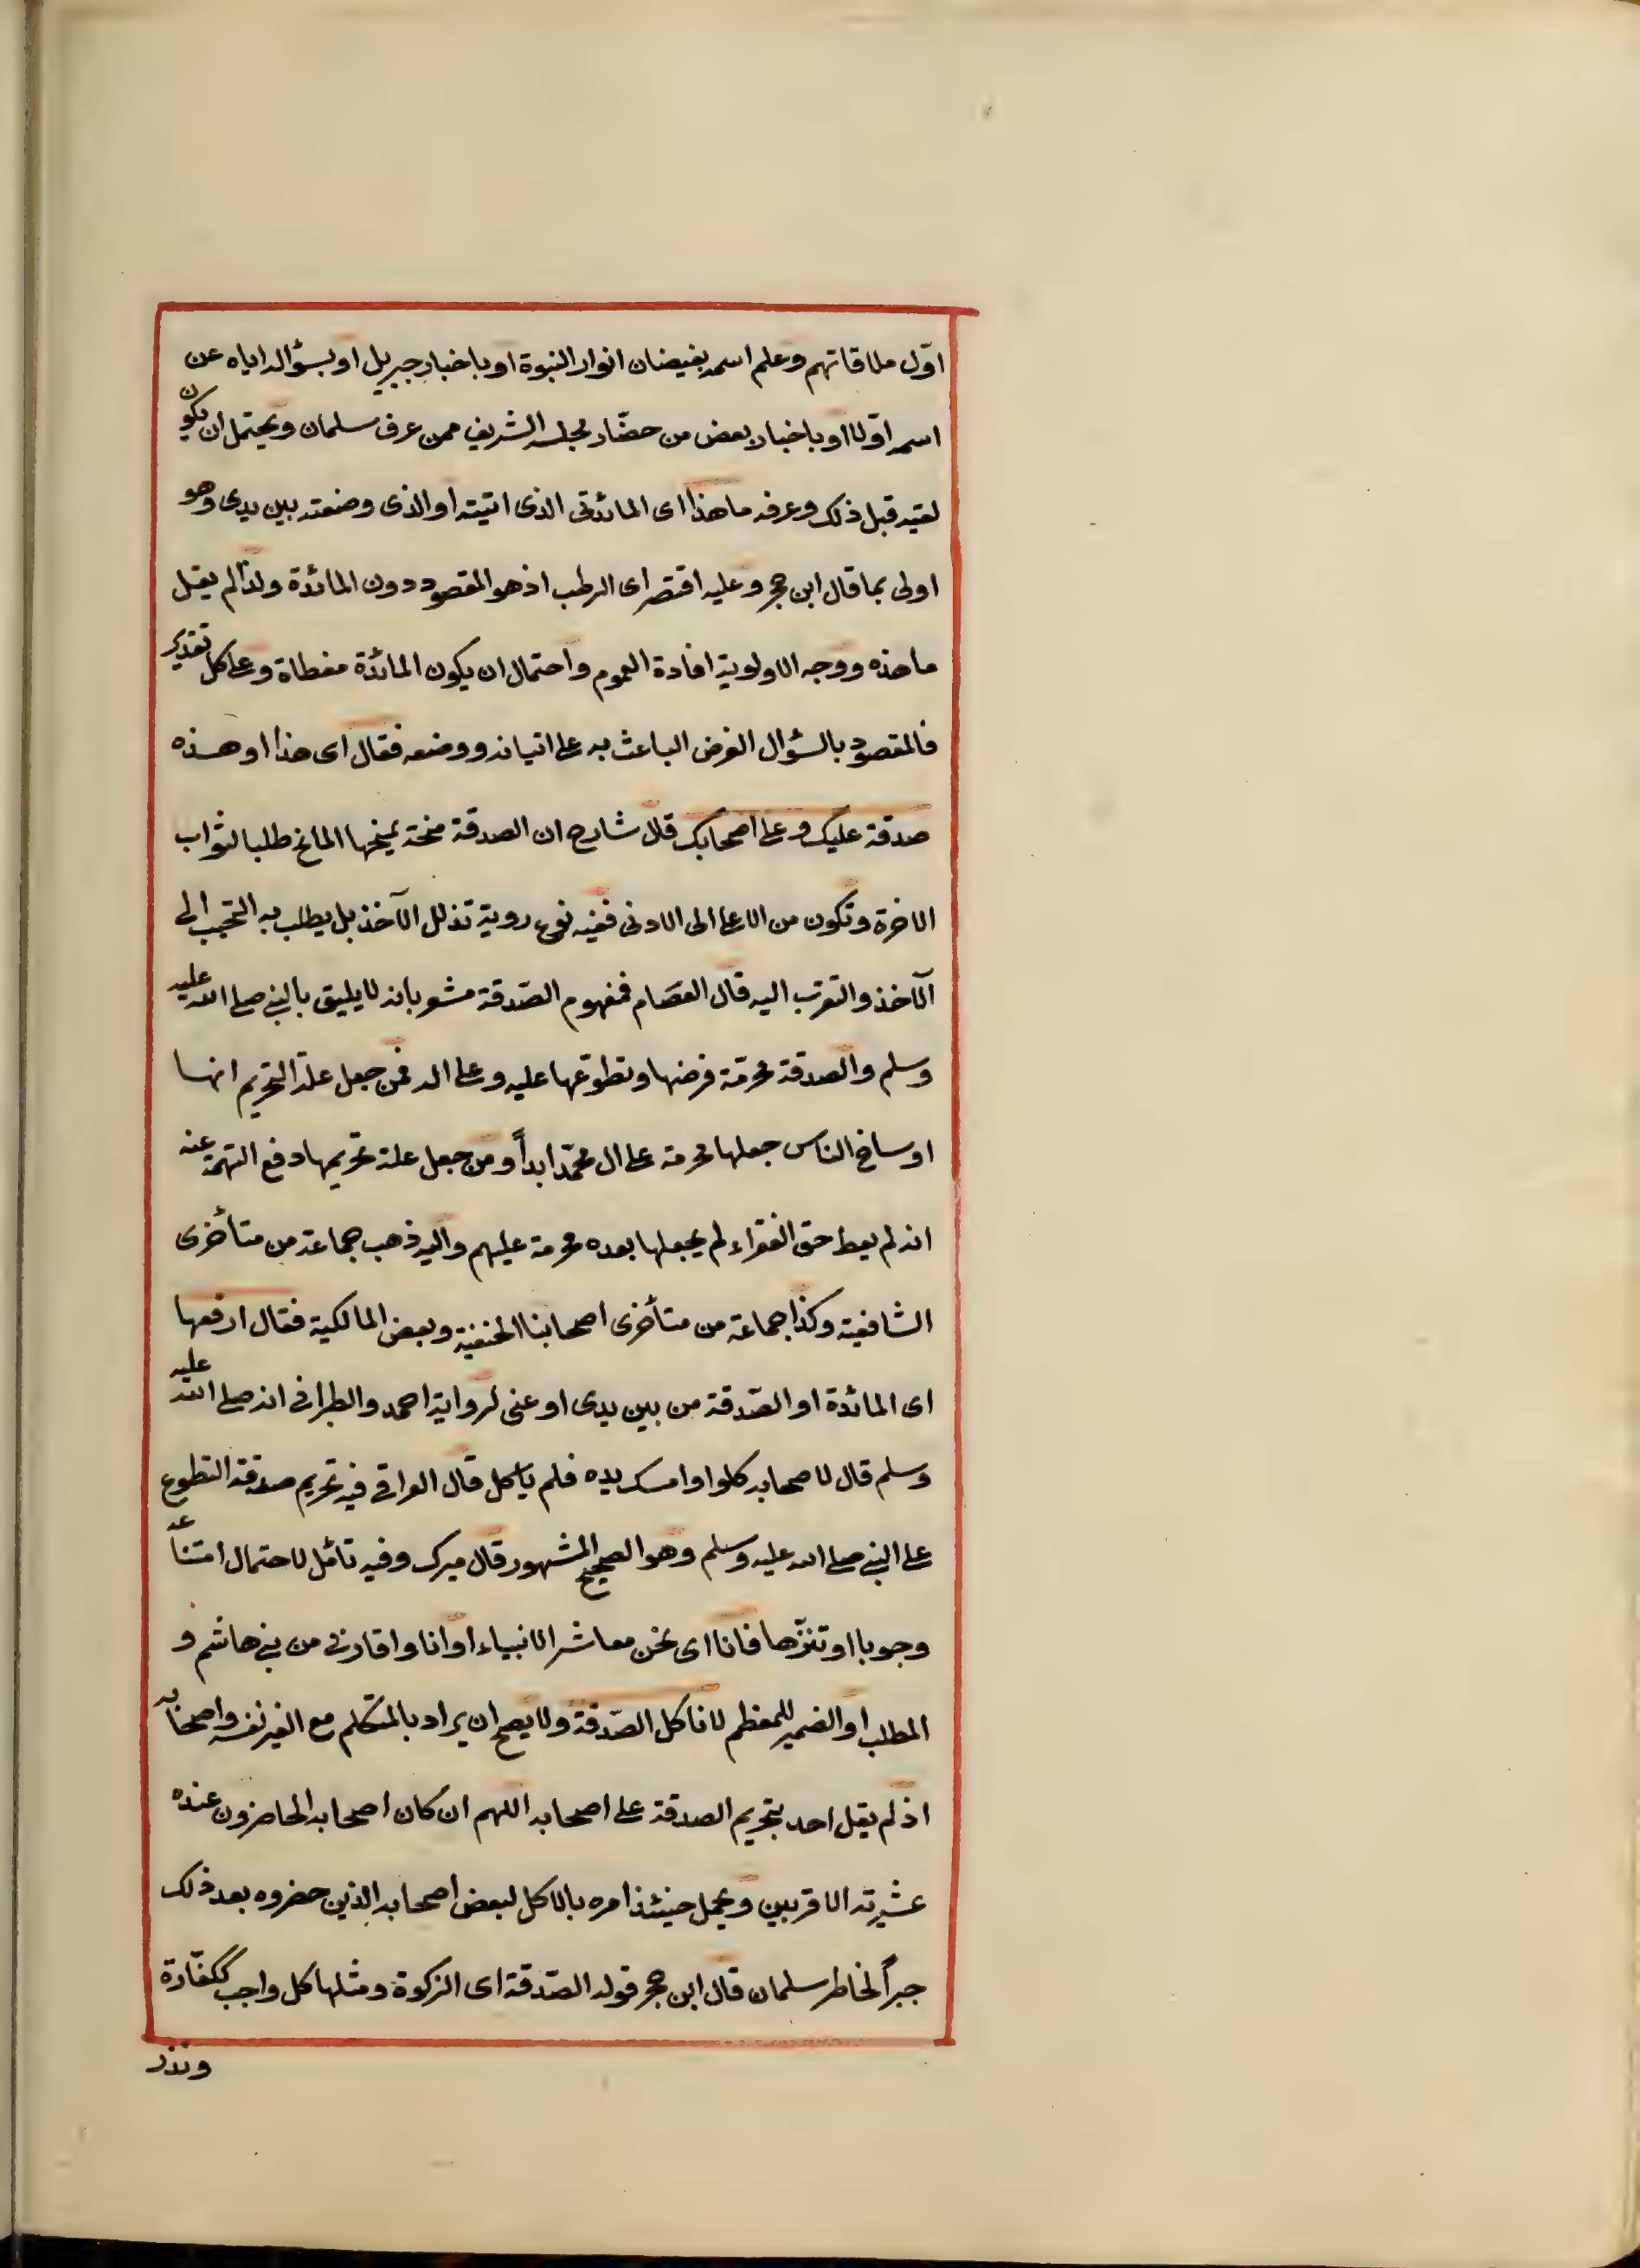 اوّل ملاقاتهم وعلم اسمه بفيضان انوار النبوة او باخبار جبريل او بسؤاله اياه عن
اسمه اوّلا او باخبار بعض من حضّار مجلسه الشريف ممن عرف سلمان ويحتمل ان يكون
لقيه قبل ذلك وعرفه ما هذا اى المأئدتى الذى اتيته او الذى وضعته بين يدى وهو
اولى بما قال ابن حجر وعليه اقتصر اى الرطب اذ هو المقصود دون المائدة ولذا لم يقل
ما هذه ووجه الاولوية افادة العموم واحتمال ان يكون المائدة مغطاة وعلى كل تقدير
فالمقصود بالسؤال الغرض الباعث به على اتيانه ووضعه فقال اى هذا او هذه
صدقة عليك وعلى اصحابك قال شارح ان الصدقة منحة يمنحها المانح طلبا لثواب
الاخرة وتكون من الاعلى الى الادنى ففيه نوع روية تذلل الآخذ بل يطلب به التحبب الى
الآخذ والتقرب اليه قال العصَام فمفهوم الصّدقة مشعر بانه لا يليق بالنبى صلى الله عليه
وسلم والصدقة محرمّة فرضها وتطوعّها عليه وعلى اله فمن جعل علة التحريم انها
اوساخ الناس جعلها محرمة على ال محمّد ابداً ومن جعل علة تحريمها دفع التهمة عنه
انه لم يعط حق الفقراء لم يجعلها بعده محرمة عليهم واليه ذهب جماعة من متأخرى
الشافعية وكذا جماعة من متأخرى اصحابنا الحنفية وبعض المالكية فقال ارفعها
اى المائدة او الصّدقة من بين يدى او عنى لرواية احمد والطبرانى انه صلى الله عليه
وسلم قال لاصحابه كلوا وامسك يده فلم ياكل قال العراقى فيه تحريم صدقة التطوع
على النبى صلى الله عليه وسلم وهو الصحيح المشهور قال ميرك وفيه تأمّل لاحتمال امتناعه
وجوبا او تنزّها فانا اى نحن معاشر الانبياء او انا واقاربى من بنى هاشم و
المطلب او الضمير للمعظم لا ناكل الصّدقة ولا يصح ان يراد بالمتكلم مع الغير نفسه واصحابه
اذ لم يقل احد بتحريم الصدقة على اصحابه اللهم ان كان اصحابه الحاضرون عنده
عشيرته الاقربين ويحمل حينئذ امره بالاكل لبعض اصحابه الذين حضروه بعد ذلك
جبراً لخاطر سلمان قال ابن حجر قوله الصّدقة اى الزكوة ومثلها كل واجب ككفّارة
ونذر